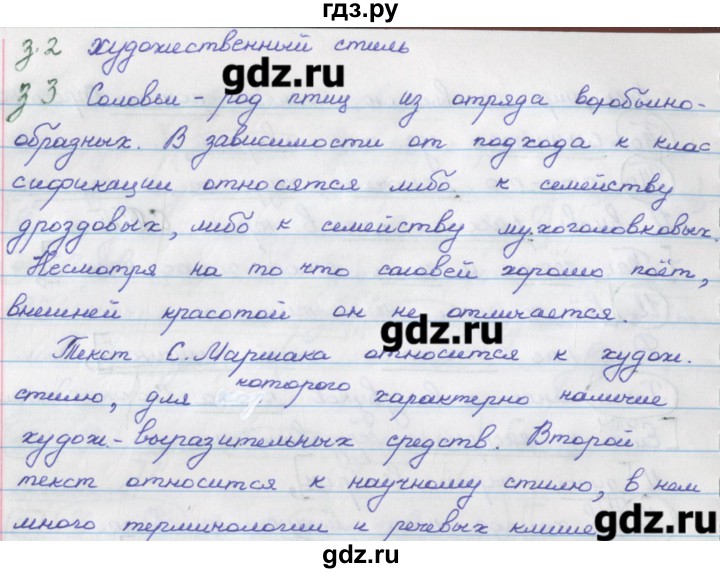 гдз.ру
з.2 художественный стиль
gdz.ru
з 3 Соловьи - род птиц из отряда воробьино-
образных. В зависимости от подхода к клас
сификации относятся либо к семейству
дроздовых, либо к семейству мухоголовковых.
Несмотря на то что соловей хорошо поёт,
внешней красотой он не отличается.
gdz.ru
Текст С. Маршака относится к худож.
стилю, для которого характерно наличие
худож-выразительных средств. Второй
текст относится к научному стилю, в нем
много терминологии и речевых клише
gdz.ru
gdz.ru